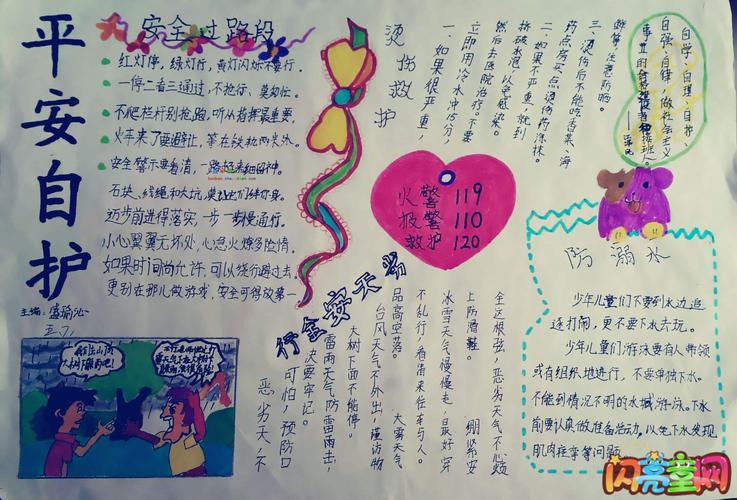 平安自护
主编:盛瑜沁
五.7.
安全过路段
红灯停,绿灯行,黄灯闪烁不要行。
一停二看三通过,不抢行、莫匆忙。
不爬栏杆别抢跑,听从指挥最重要
火车来了要避让,等在铁轨两米外。
安全警示要看清,
石块、线绳和大坑,莫让它们绊你身。
迈步前进得落实,一步一步慢通行。
小心翼翼无坏处,心急火燎多险情。
如果时间尚允许,可以绕行避过去。
更别在那儿做游戏,安全可得放第一
烫伤救护
一、如果很严重,
立即用冷水冲15分,
然后去医院治疗。不要
挤破水泡,以免感染。
二、如果不严重,就到
药点房买点烫伤药涂抹。
三、烫伤后不能吃香菜、海
自学、自理、自护、
自强、自律,做社会主义
事业的合格建设者和接班人
火警 119
报警 110
救护 120
防溺水
少年儿童们不要到水边追
逐打闹,更不要下水去玩。
少年儿童们游泳要有人带领
或有组织地进行,不要单独下水。
不能到情况不明的水域游泳。下水
前要认真做准备活动,以免下水发现
肌肉痉挛等问题
恶劣天,不
可怕,预防口
诀要牢记。
雷雨天气防雷雨击,
大树下面不能停。
台风天气不外出,谨防物
品高空落。 大雾天气
不乱行,看清来往车与人。
冰雪天气慢慢走,最好穿
上防滑鞋。 绷紧安
全这根弦,恶劣天气不心烦
闪亮童网